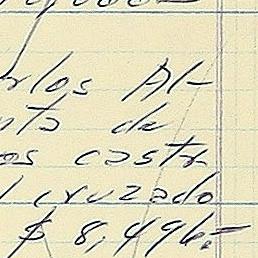 rlos Al-
nto de
os castr
l cruzado
$ 8,496.=